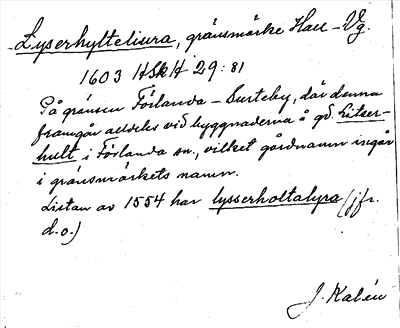 Lyserhylteliura, gränsmärke Hall - Vg.
1603 HSkH 29:81
På gränsen Förlanda - Surteby, där denna
framgår alldeles vid byggnaderna å gd. Litser-
hult i Förlanda sn., vilket gårdnamn ingår
i gränsmärkets namn.
Listan av 1554 har lysserholtalyra (jfr.
d.o.)
J. Kalén